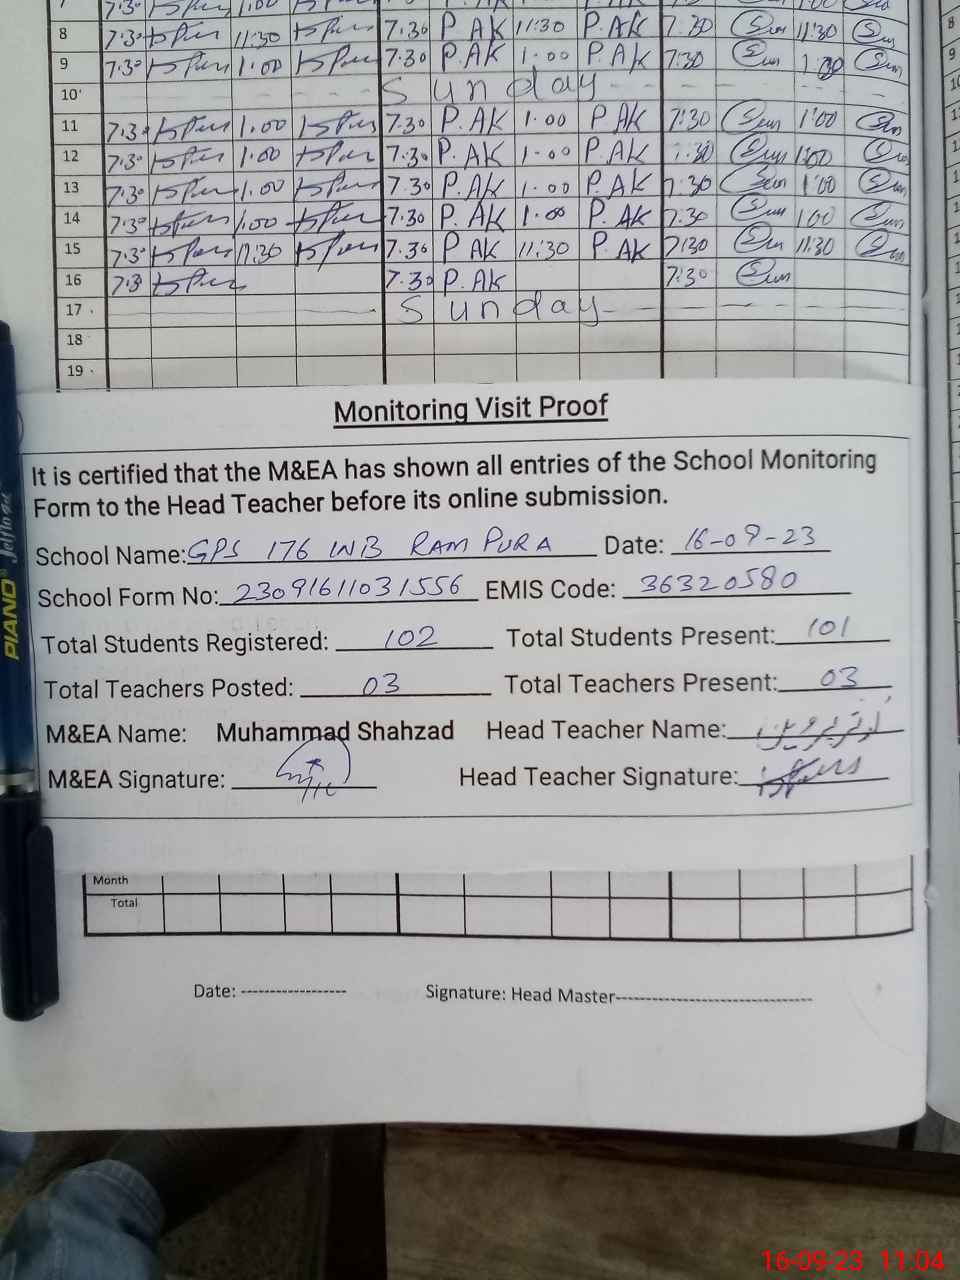 8 7:30 11:30 7:30 P. AK 11:30 P. AK 7:30 11:30
9 7:30 1:00 7:30 P.AK 1:00 P. AK 7:30 1:00
10 Sunday
11 7:30 1:00 7:30 P. AK 1:00 P AK 7:30 1:00
12 7:30 1:00 7:30 P. AK 1:00 P. AK 7:30 1:00
13 7:30 1:00 7:30 P. AK 1:00 P. AK 7:30 1:00
14 7:30 1:00 7:30 P. AK 1:00 P. AK 7:30 1:00
15 7:30 11:30 7:30 P AK 11:30 P. AK 7:30 11:30
16 7:3 7:30 P. AK 7:30
17 Sunday
18
19
Monitoring Visit Proof
It is certified that the M&EA has shown all entries of the School Monitoring
Form to the Head Teacher before its online submission.
School Name: GPS 176 WB RAM PURA Date: 16-09-23
School Form No: 23091611031556 EMIS Code: 36320580
Total Students Registered: 102 Total Students Present: 101
Total Teachers Posted: 03 Total Teachers Present: 03
M&EA Name: Muhammad Shahzad Head Teacher Name:
M&EA Signature: Head Teacher Signature:
Month
Total
Date: ------------------ Signature: Head Master---------------------------------
PIANO
16-09-23 11:04